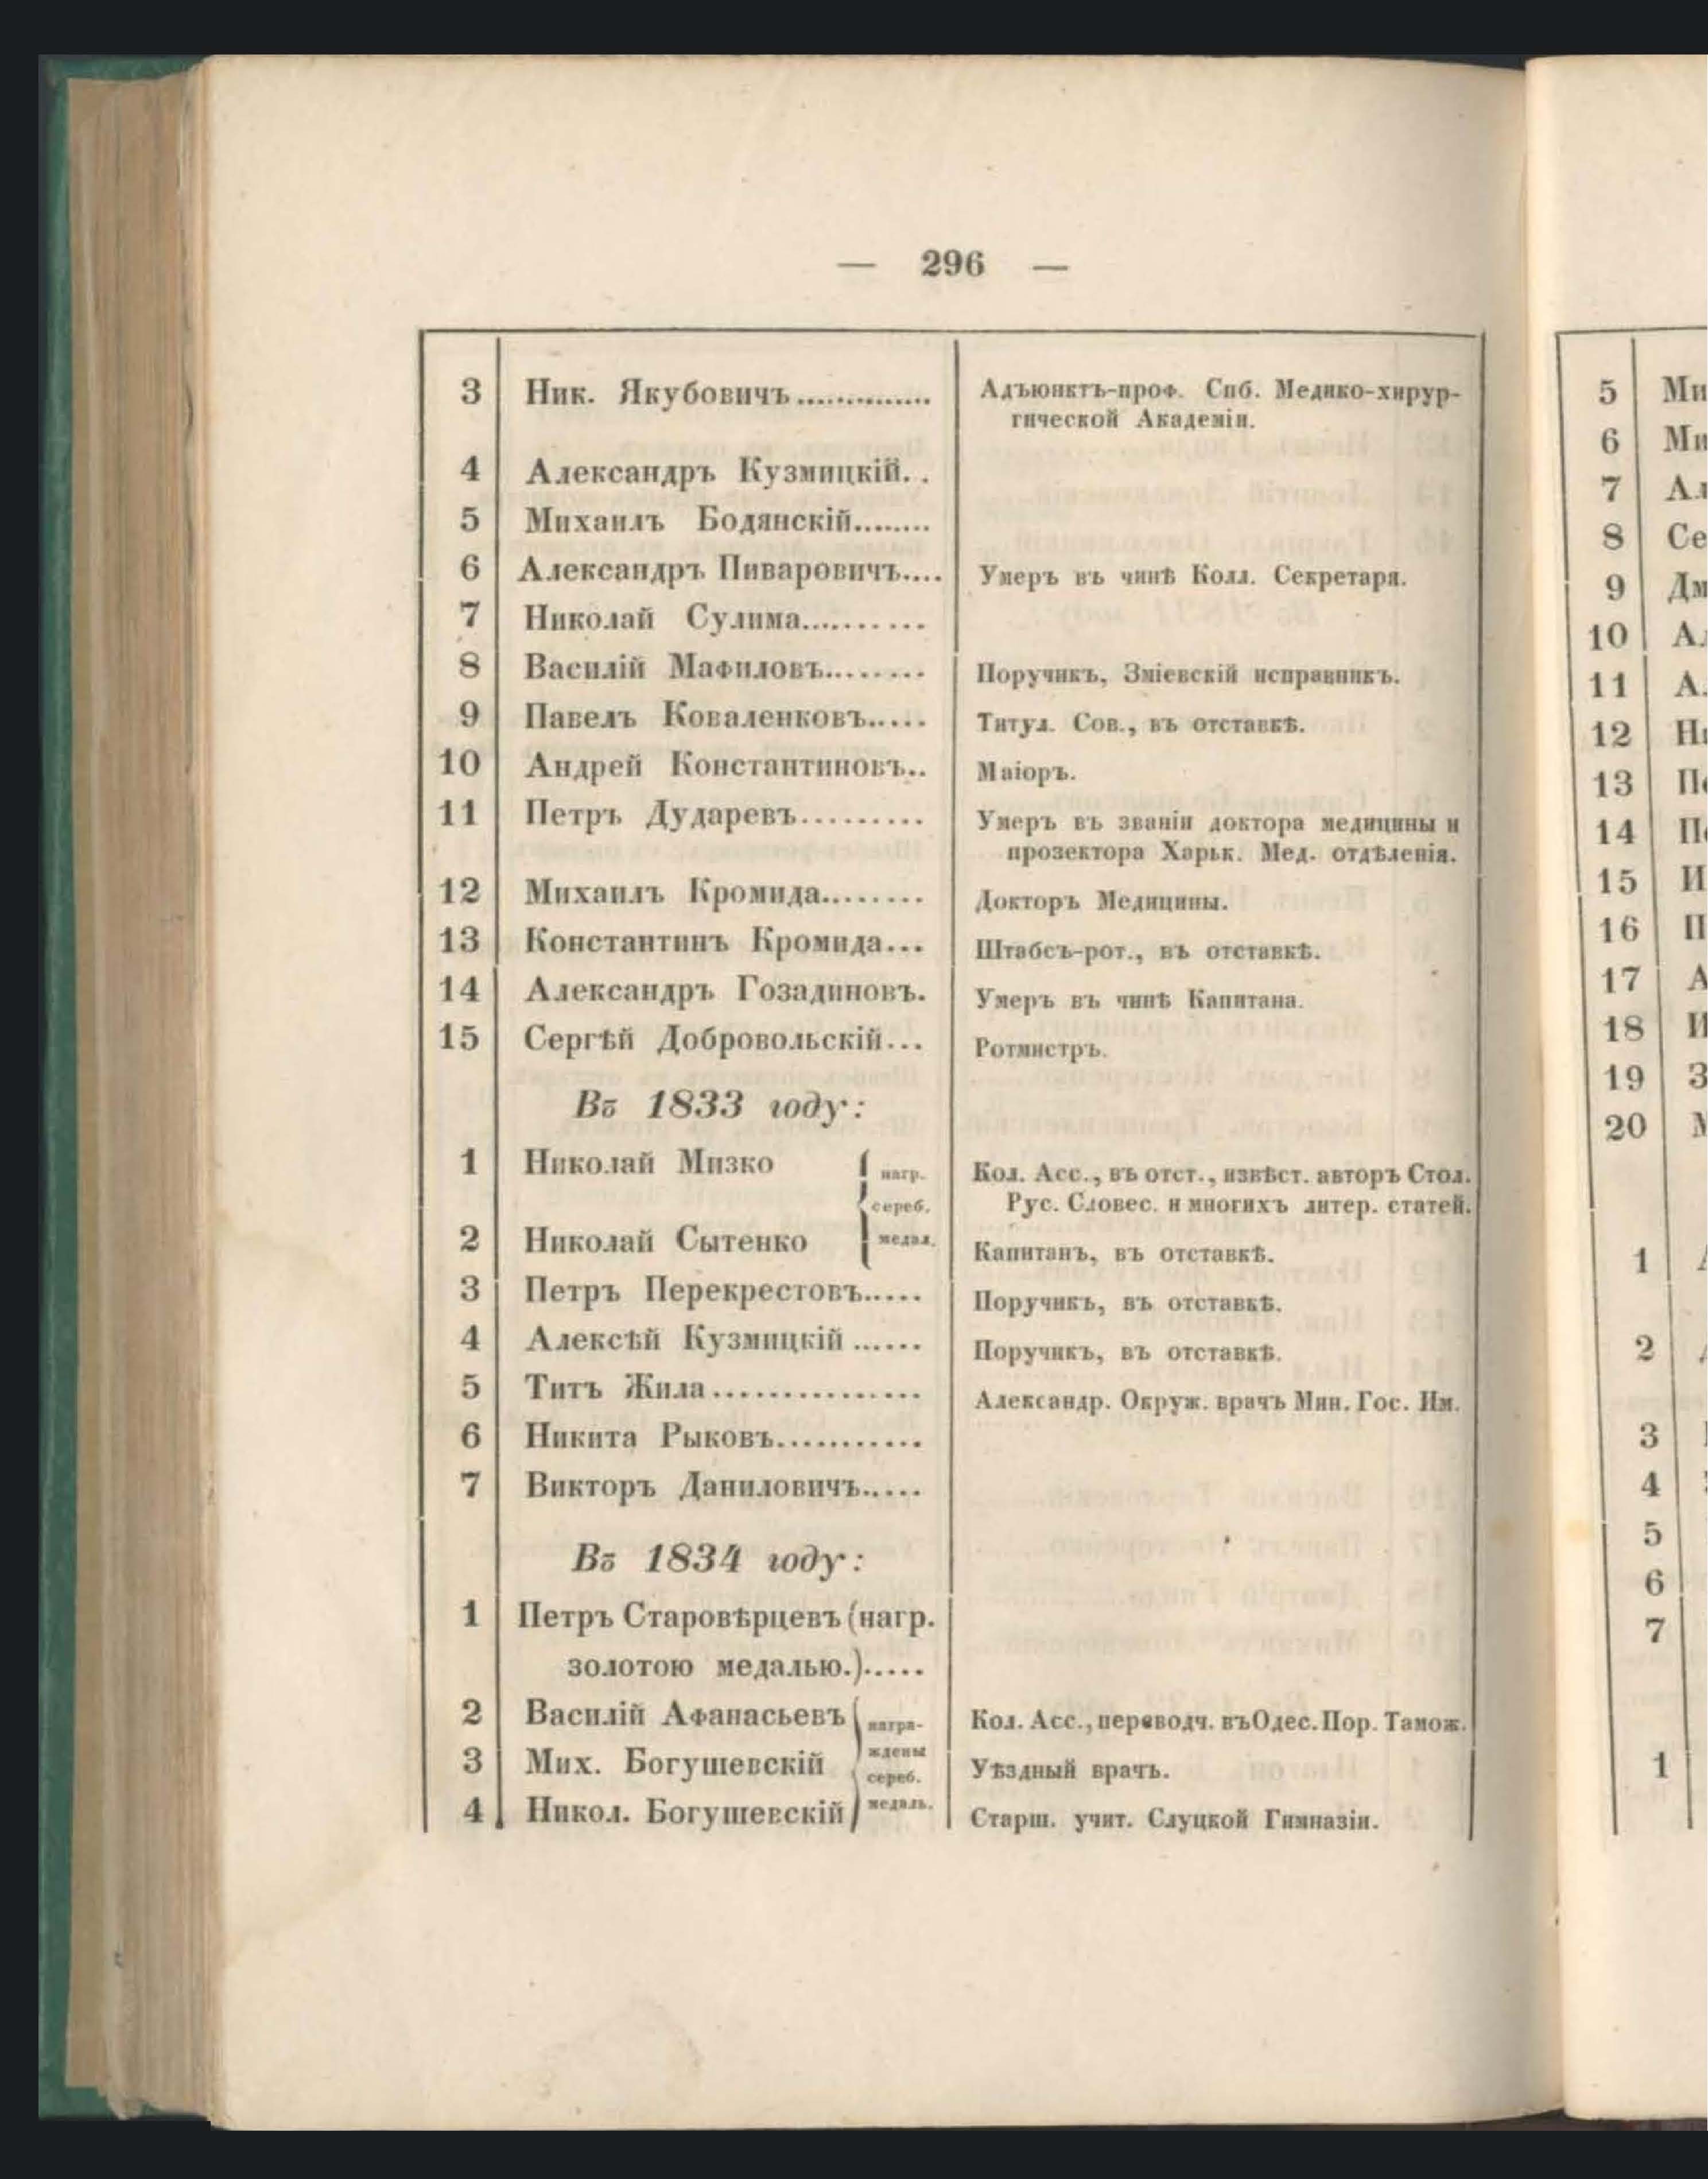 — 296 —
3 Ник. Якубовичъ.............. Адъюнктъ-проф. Спб. Медико-хирур-
гической Академіи.
4 Александръ Кузмицкій. .
5 Михаилъ Бодянскій........
6 Александръ Пиваровичъ.... Умеръ въ чинѣ Колл. Секретаря.
7 Николай Сулима...........
8 Василій Мафиловъ........ Поручикъ, Зміевскій исправникъ.
9 Павелъ Коваленковъ..... Титул. Сов., въ отставкѣ.
10 Андрей Константиновъ.. Маіоръ.
11 Петръ Дударевъ......... Умеръ въ званіи доктора медицины и
прозектора Харьк. Мед. отдѣленія.
12 Михаилъ Кромида........ Докторъ Медицины.
13 Константинъ Кромида... Штабсъ-рот., въ отставкѣ.
14 Александръ Гозадиновъ. Умеръ въ чинѣ Капитана.
15 Сергѣй Добровольскій... Ротмистръ.
Въ 1833 году:
1 Николай Мизко нагр. Кол. Асс., въ отст., извѣст. авторъ Стол.
сереб. Рус. Словес. и многихъ литер. статей.
2 Николай Сытенко медал. Капитанъ, въ отставкѣ.
3 Петръ Перекрестовъ..... Поручикъ, въ отставкѣ.
4 Алексѣй Кузмицкій ...... Поручикъ, въ отставкѣ.
5 Титъ Жила............... Александр. Окруж. врачъ Мин. Гос. Им.
6 Никита Рыковъ...........
7 Викторъ Даниловичъ.....
Въ 1834 году:
1 Петръ Старовѣрцевъ (нагр.
золотою медалью.).....
2 Василій Афанасьевъ награ- Кол. Асс., переводч. въ Одес. Пор. Тамож.
ждены
3 Мих. Богушевскій сереб. Уѣздный врачъ.
4 Никол. Богушевскій медаль. Старш. учит. Слуцкой Гимназіи.
5 Ми
6 Ми
7 Ал
8 Се
9 Дм
10 Ал
11 А.
12 Ни
13 Пе
14
15 И
16 П
17 А
18 И
19 З
20 М
1
2
3
4
5
6
7
1